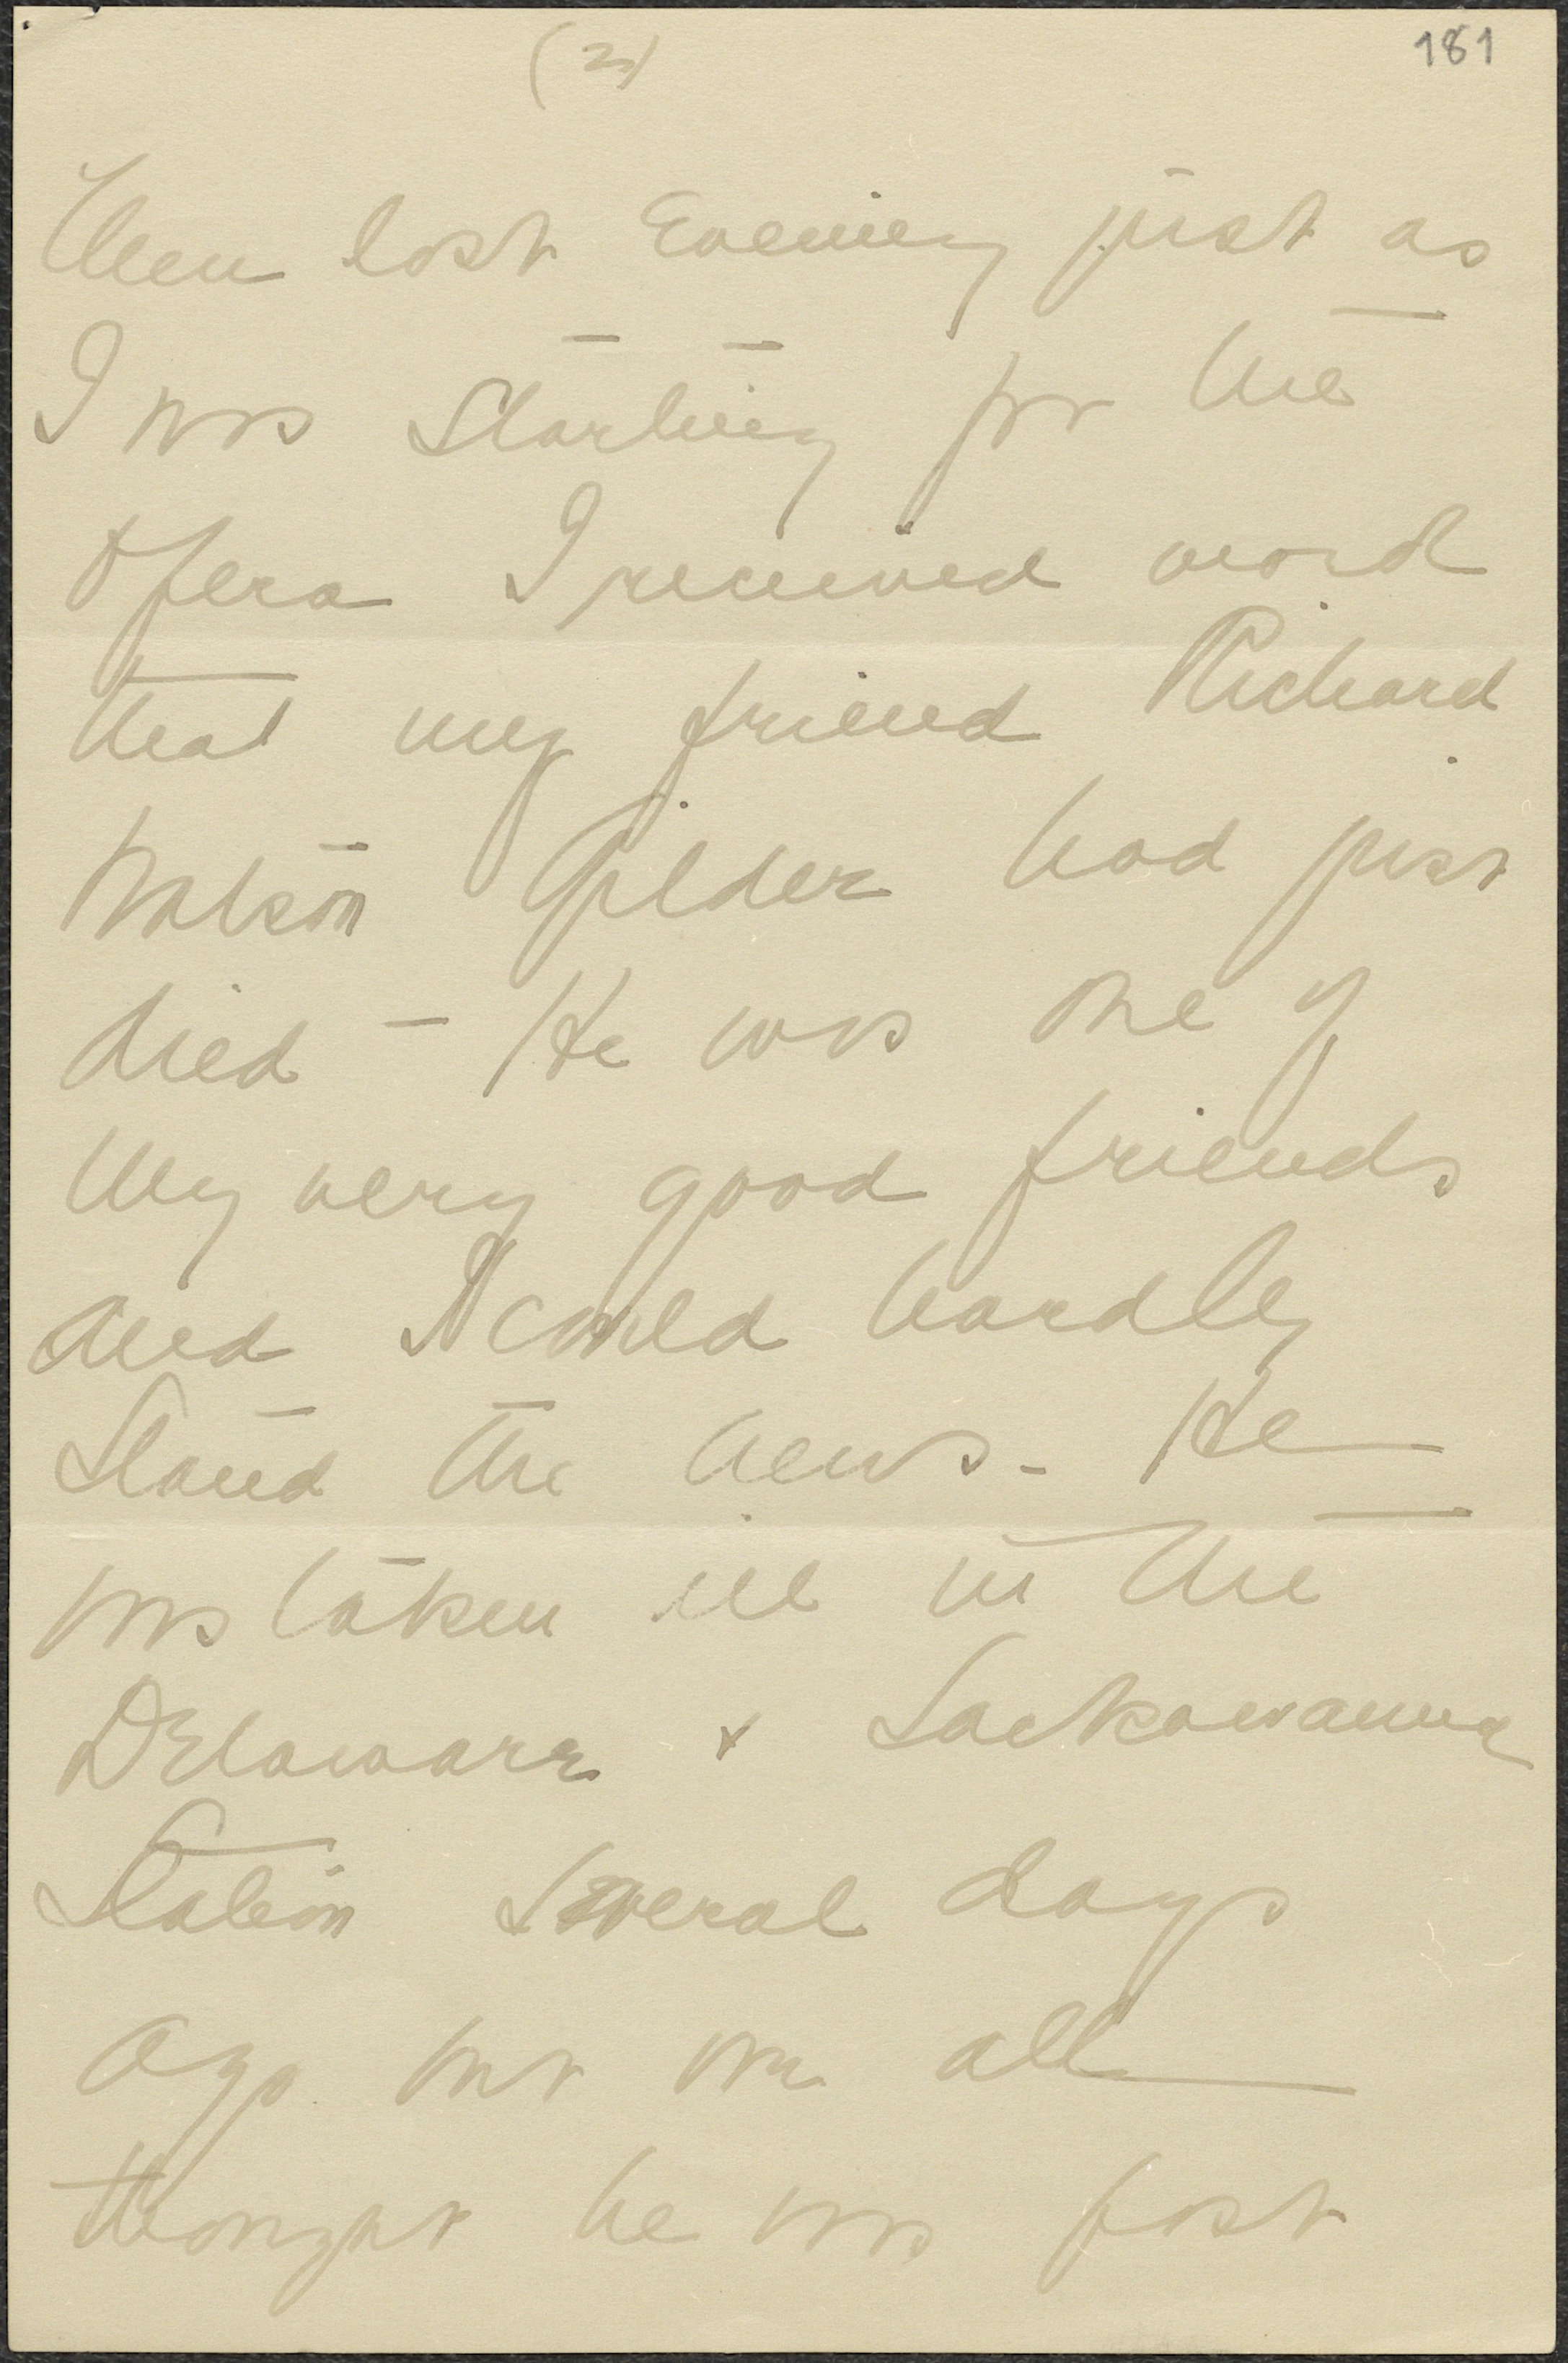 (2)
181
Then last Evening just as
I was Starting for the
Opera I received word
that my friend Richard
Watson Gilder had just
died – He was one of
My very good friends
and I could hardly
Stand the news – He
was taken ill in the
Delaware & Lackawanna
Station Several days
ago but we all
thought he was fast